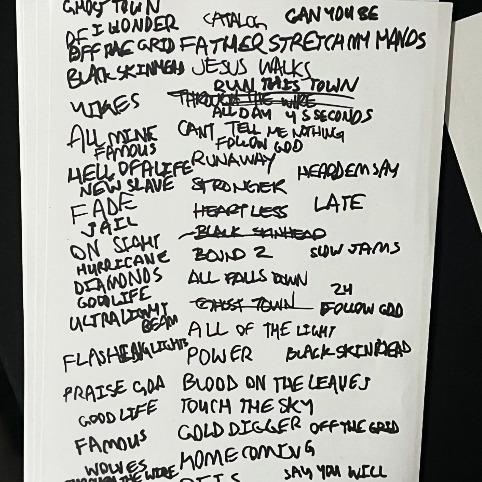 GHOST TOWN
CATALOG CAN YOU BE
OF I WONDER
OFF THE GRID FATHER STRETCH MY HANDS
BLACKSKINHEAD JESUS WALKS
RUN THIS TOWN
WIRES THROUGH THE WIRE
ALL DAY 45 SECONDS
ALL MINE CANT TELL ME NOTHING
FAMOUS FOLLOW GOD
HELL OF A LIFE RUNAWAY HEARDEMSAY
NEW SLAVE STRONGER
FADE HEARTLESS LATE
JAIL
ON SIGHT BLACK SKINHEAD
HURRICANE BOUND 2 SLOW JAMS
DIAMONDS ALL FALLS DOWN
GOODLIFE GHOST TOWN 24
ULTRALIGHT FOLLOW GOD
BEAM ALL OF THE LIGHT
FLASHING LIGHTS POWER BLACKSKINHEAD
PRAISE GOD BLOOD ON THE LEAVES
GOOD LIFE TOUCH THE SKY
FAMOUS GOLD DIGGER OFF THE GRID
WOLVES HOMECOMING
THROUGH THE WIRE SAY YOU WILL